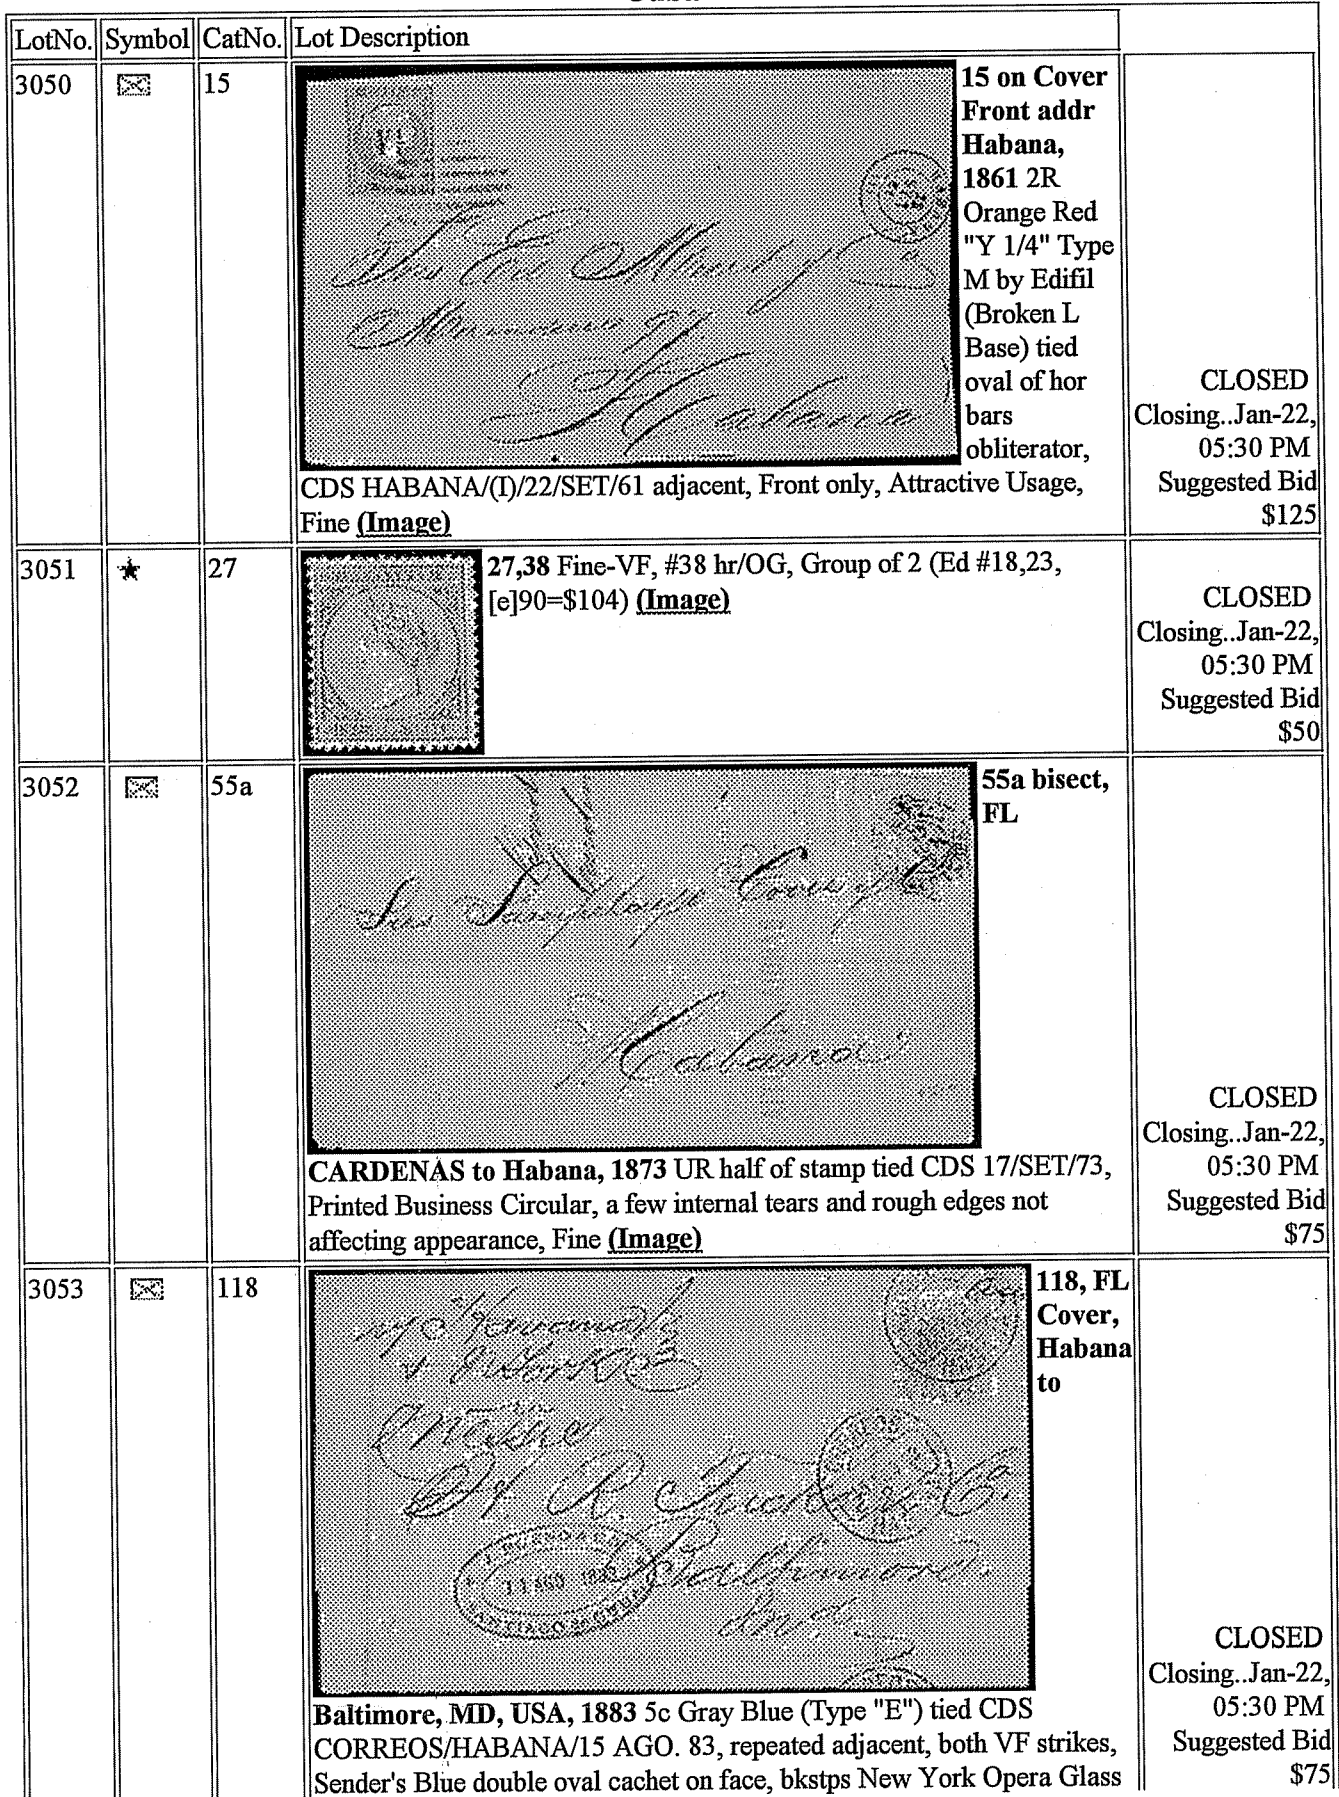 LotNo. Symbol CatNo. Lot Description
3050 15
15 on Cover
Front addr
Habana,
1861 2R
Orange Red
"Y 1/4" Type
M by Edifil
(Broken L
Base) tied
oval of hor
bars
obliterator,
CDS HABANA/(I)/22/SET/61 adjacent, Front only, Attractive Usage,
Fine (Image)
CLOSED
Closing..Jan-22,
05:30 PM
Suggested Bid
$125
Habana
3051 27
27,38 Fine-VF, #38 hr/OG, Group of 2 (Ed #18,23,
[e]90=$104) (Image)
CLOSED
Closing..Jan-22,
05:30 PM
Suggested Bid
$50
3052 55a
55a bisect,
FL
Habana
CARDENAS to Habana, 1873 UR half of stamp tied CDS 17/SET/73,
Printed Business Circular, a few internal tears and rough edges not
affecting appearance, Fine (Image)
CLOSED
Closing..Jan-22,
05:30 PM
Suggested Bid
$75
3053 118
118, FL
Cover,
Habana
to
11 AGO 1883
Baltimore
Baltimore, MD, USA, 1883 5c Gray Blue (Type "E") tied CDS
CORREOS/HABANA/15 AGO. 83, repeated adjacent, both VF strikes,
Sender's Blue double oval cachet on face, bkstps New York Opera Glass
CLOSED
Closing..Jan-22,
05:30 PM
Suggested Bid
$75